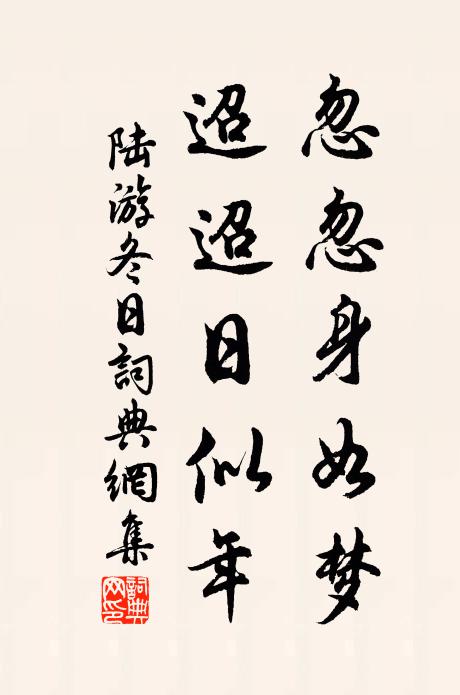 忽忽身如梦
迢迢日似年
陆游冬日詞典網集
詞典网印